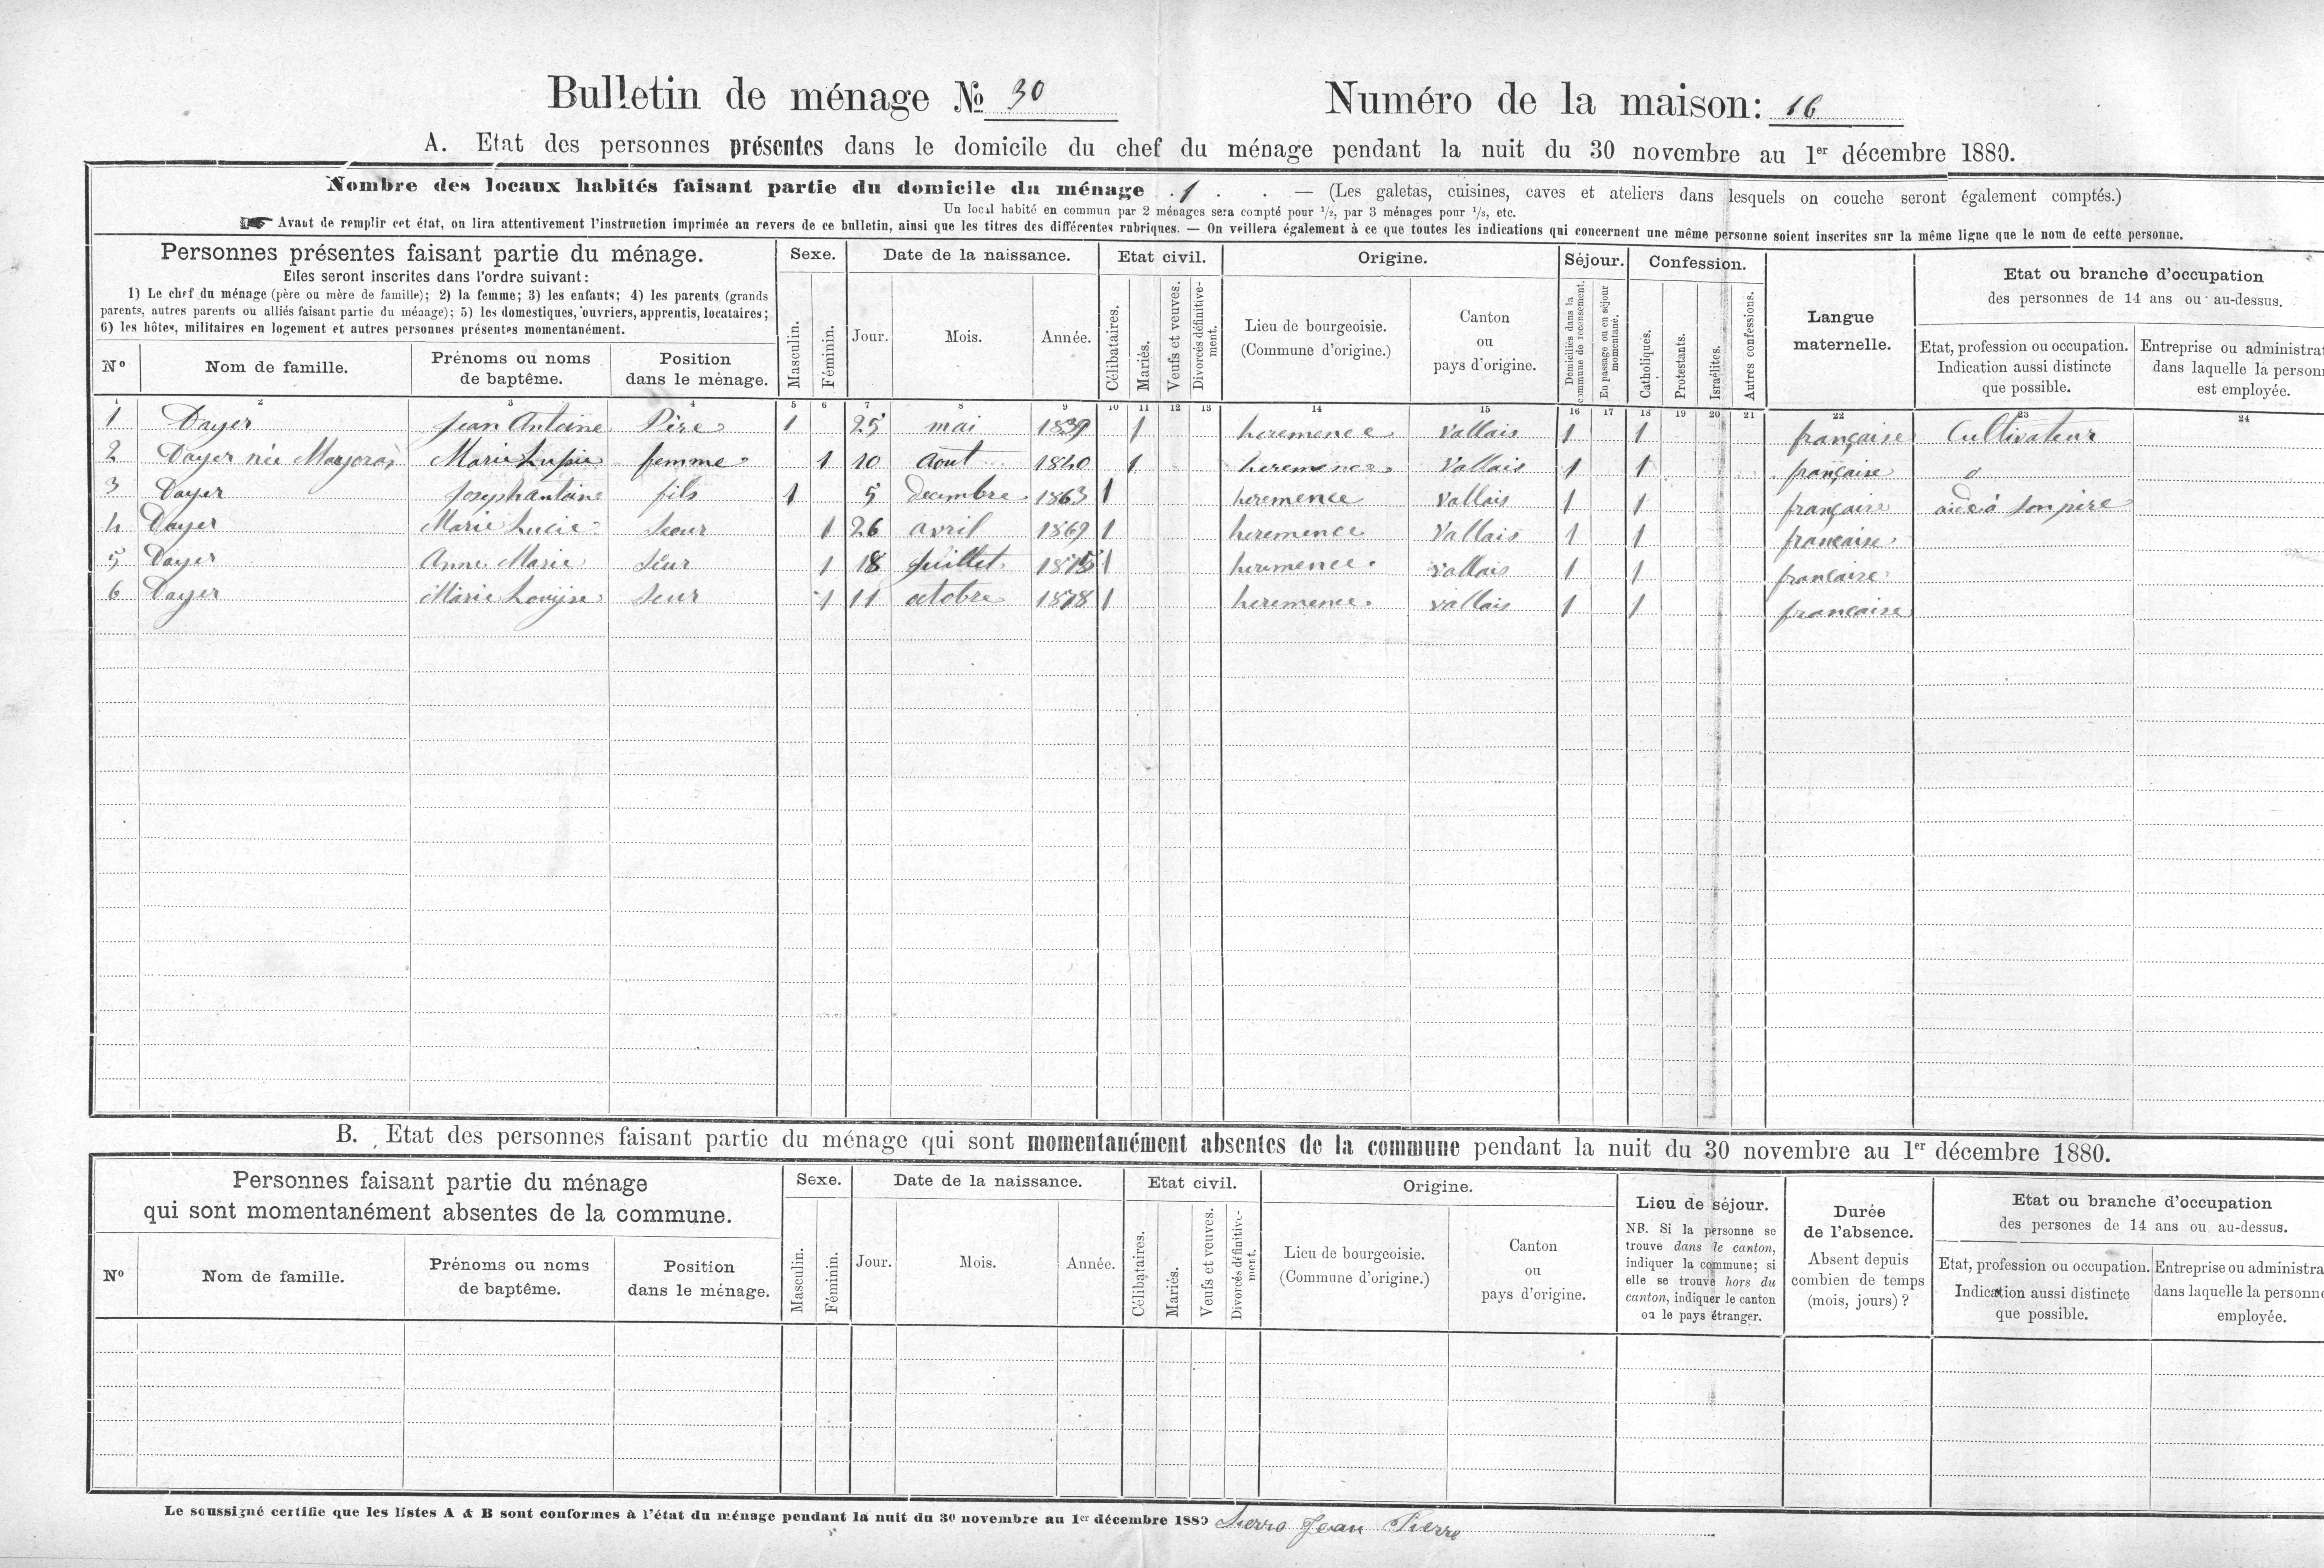 Bulletin de ménage № 30 Numéro de la maison: 16
A. Etat des personnes présentes dans le domicile du chef du ménage pendant la nuit du 30 novembre au 1er décembre 1880.
Nombre des locaux habités faisant partie du domicile du ménage . 1 . . — (Les galetas, cuisines, caves et ateliers dans lesquels on couche seront également comptés.)
Un local habité en commun par 2 ménages sera compté pour 1/2, par 3 ménages pour 1/3, etc.
Avant de remplir cet état, on lira attentivement l'instruction imprimée au revers de ce bulletin, ainsi que les titres des différentes rubriques. — On veillera également à ce que toutes les indications qui concernent une même personne soient inscrites sur la même ligne que le nom de cette personne.
Personnes présentes faisant partie du ménage.
Elles seront inscrites dans l'ordre suivant:
1) Le chef du ménage (père ou mère de famille); 2) la femme; 3) les enfants; 4) les parents (grands
parents, autres parents ou alliés faisant partie du ménage); 5) les domestiques, ouvriers, apprentis, locataires;
6) les hôtes, militaires en logement et autres personnes présentes momentanément.
N°
Nom de famille.
Prénoms ou noms
de baptême.
Position
dans le ménage.
Sexe.
Masculin.
Féminin.
Date de la naissance.
Jour.
Mois.
Année.
Etat civil.
Célibataires.
Mariés.
Veufs et veuves.
Divorcés définitive-
ment.
Origine.
Lieu de bourgeoisie.
(Commune d'origine.)
Canton
ou
pays d'origine.
Séjour.
Domiciliés dans la
commune de recensement.
En passage ou en séjour
momentané.
Confession.
Catholiques.
Protestants.
Israélites.
Autres confessions.
Langue
maternelle.
Etat ou branche d'occupation
des personnes de 14 ans ou au-dessus.
Etat, profession ou occupation.
Indication aussi distincte
que possible.
Entreprise ou administrat
dans laquelle la personn
est employée.
1 2 3 4 5 6 7 8 9 10 11 12 13 14 15 16 17 18 19 20 21 22 23 24
1 Dayer Jean Antoine Père 1 25 mai 1839 1 heremence Vallais 1 1 française Cultivateur
2 Dayer née Mayoraz Marie femme 1 10 Aout 1840 1 heremence Vallais 1 1 française d
3 Dayer Joseph antoine fils 1 5 decembre 1863 1 heremence Vallais 1 1 française aide à son père
4 Dayer Marie Lucie Seur 1 26 avril 1869 1 heremence Vallais 1 1 française
5 Dayer Anne Marie Seur 1 18 Juillet 1875 1 heremence Vallais 1 1 française
6 Dayer Marie Louyse Seur 1 11 octobre 1878 1 heremence Vallais 1 1 française
B. Etat des personnes faisant partie du ménage qui sont momentanément absentes de la commune pendant la nuit du 30 novembre au 1er décembre 1880.
Personnes faisant partie du ménage
qui sont momentanément absentes de la commune.
N°
Nom de famille.
Prénoms ou noms
de baptême.
Position
dans le ménage.
Sexe.
Masculin.
Féminin.
Date de la naissance.
Jour.
Mois.
Année.
Etat civil.
Célibataires.
Mariés.
Veufs et veuves.
Divorcés définitive-
ment.
Origine.
Lieu de bourgeoisie.
(Commune d'origine.)
Canton
ou
pays d'origine.
Lieu de séjour.
NB. Si la personne se
trouve dans le canton,
indiquer la commune; si
elle se trouve hors du
canton, indiquer le canton
ou le pays étranger.
Durée
de l'absence.
Absent depuis
combien de temps
(mois, jours) ?
Etat ou branche d'occupation
des persones de 14 ans ou au-dessus.
Etat, profession ou occupation.
Indication aussi distincte
que possible.
Entreprise ou administra
dans laquelle la personne
employée.
Le soussigné certifie que les listes A & B sont conformes à l'état du ménage pendant la nuit du 30 novembre au 1er décembre 1880 Sierro Jean Pierre